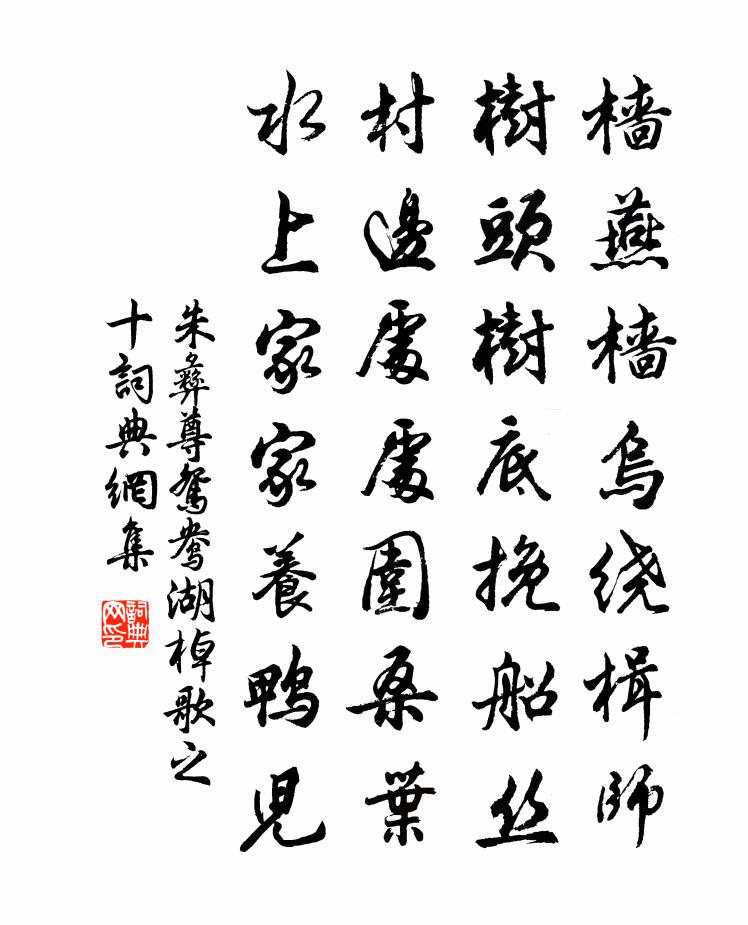 檣燕檣烏绕楫師
樹頭樹底挽船丝
村邊處處圍桑葉
水上家家養鴨児
朱彞尊鴛鴦湖棹歌之
十詞典網集
詞典网印